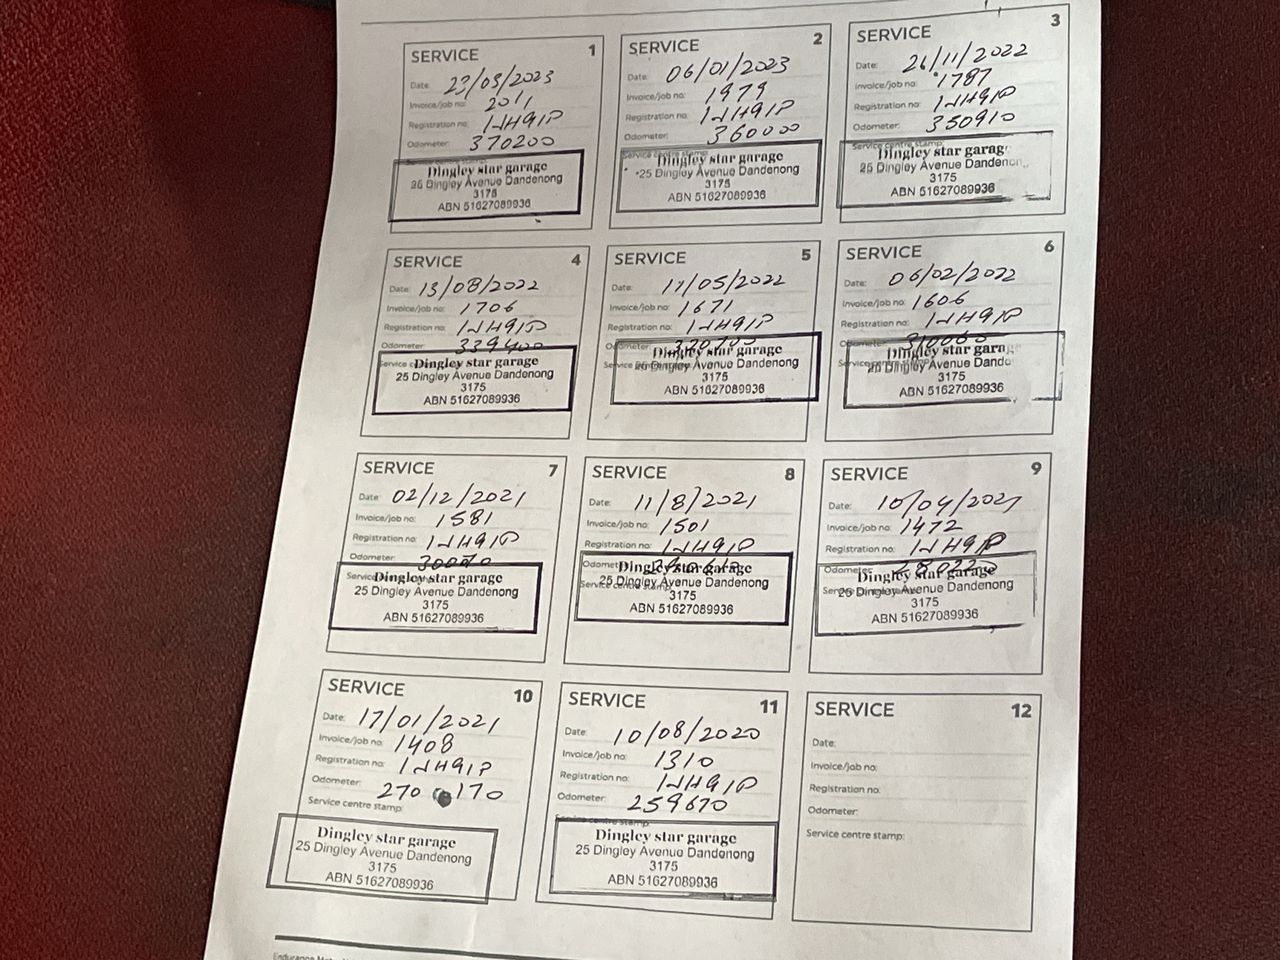 SERVICE 1
Date: 23/03/2023
Invoice/job no: 2011
Registration no: 1JH91P
Odometer: 370200
Service centre stamp:
Dingley star garage
25 Dingley Avenue Dandenong
3175
ABN 51627089936
SERVICE 2
Date: 06/01/2023
Invoice/job no: 1979
Registration no: 1JH91P
Odometer: 360000
Service centre stamp:
Dingley star garage
25 Dingley Avenue Dandenong
3175
ABN 51627089936
SERVICE 3
Date: 26/11/2022
Invoice/job no: 1787
Registration no: 1JH91P
Odometer: 350910
Service centre stamp:
Dingley star garag
25 Dingley Avenue Dandenon
3175
ABN 51627089936
SERVICE 4
Date: 13/08/2022
Invoice/job no: 1706
Registration no: 1JH91P
Odometer: 339400
Service
Dingley star garage
25 Dingley Avenue Dandenong
3175
ABN 51627089936
SERVICE 5
Date: 17/05/2022
Invoice/job no: 1671
Registration no: 1JH91P
Odometer:
Service
Dingley star garage
25 Dingley Avenue Dandenong
3175
ABN 51627089936
SERVICE 6
Date: 06/02/2022
Invoice/job no: 1606
Registration no: 1JH91P
Odometer:
Service centre stamp:
Dingley star garag
25 Dingley Avenue Dando
3175
ABN 51627089936
SERVICE 7
Date: 02/12/2021
Invoice/job no: 1581
Registration no: 1JH91P
Odometer:
Dingley star garage
25 Dingley Avenue Dandenong
3175
ABN 51627089936
SERVICE 8
Date: 11/8/2021
Invoice/job no: 1501
Registration no: 1JH91P
Service centre stamp:
Dingley star garage
25 Dingley Avenue Dandenong
3175
ABN 51627089936
SERVICE 9
Date: 10/04/2021
Invoice/job no: 1472
Registration no: 1JH91P
Odometer:
Dingley star garage
25 Dingley Avenue Dandenong
3175
ABN 51627089936
SERVICE 10
Date: 17/01/2021
Invoice/job no: 1408
Registration no: 1JH91P
Odometer: 270 170
Service centre stamp:
Dingley star garage
25 Dingley Avenue Dandenong
3175
ABN 51627089936
SERVICE 11
Date: 10/08/2020
Invoice/job no: 1310
Registration no: 1JH91P
Odometer: 259670
Service centre stamp:
Dingley star garage
25 Dingley Avenue Dandenong
3175
ABN 51627089936
SERVICE 12
Date:
Invoice/job no:
Registration no:
Odometer:
Service centre stamp: